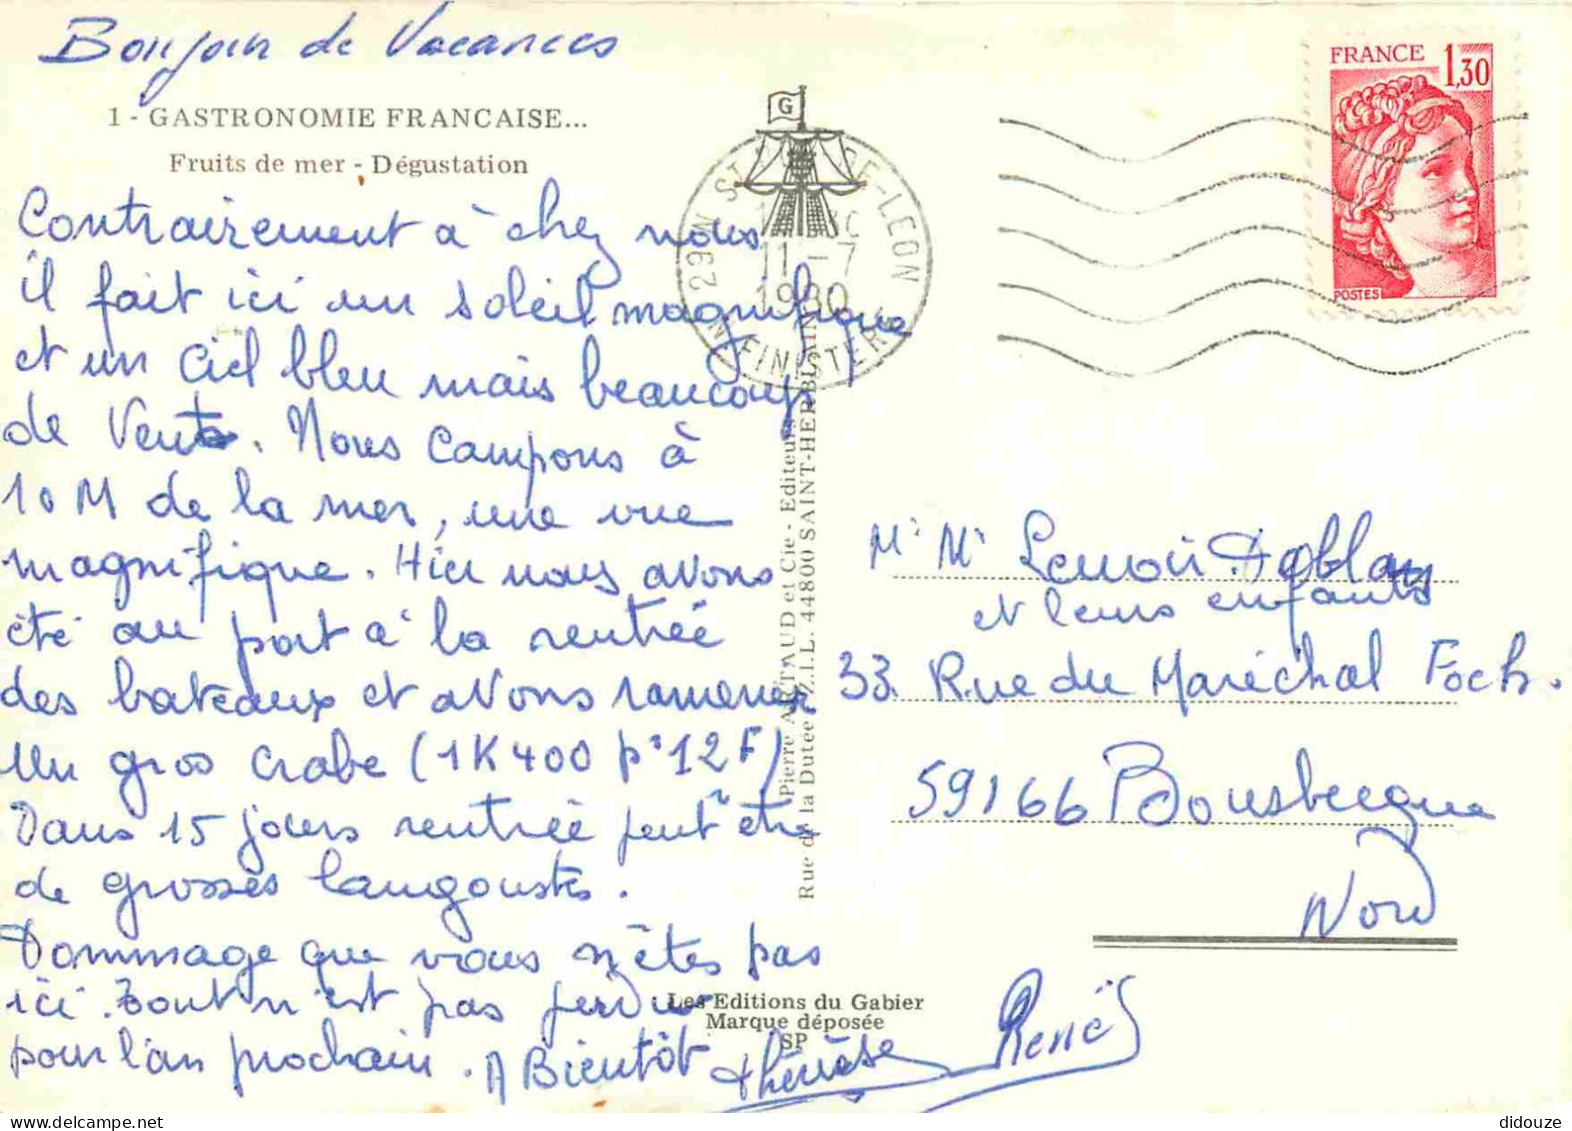 Bonjour de Vacances
1 - GASTRONOMIE FRANCAISE...
Fruits de mer - Dégustation
Contrairement à chez nous
il fait ici un soleil magnifique
et un ciel bleu mais beaucoup
de Vent. Nous campons à
10 M de la mer, une vue
magnifique. Hier nous avons
été au port à la rentrée
des bateaux et avons ramener
un gros crabe (1K400 pr 12F)
Dans 15 jours rentrée peut être
de grosses langoustes.
Dommage que vous n'êtes pas
ici. Tout n'est pas perdu
pour l'an prochain. A Bientôt
thérèse René
G
29 N ST DE-LEON
11 - 7
1980
FINISTERE
Pierre ARTAUD et Cie - Editeurs
Rue de la Dutée Z.I.L. 44800 SAINT-HERBLAIN
FRANCE 1,30
POSTES
Mr Mr Lenoir
et leurs enfants
33 Rue du Maréchal Foch.
59166 Bousbecque
Nord
Les Editions du Gabier
Marque déposée
SP
didouze